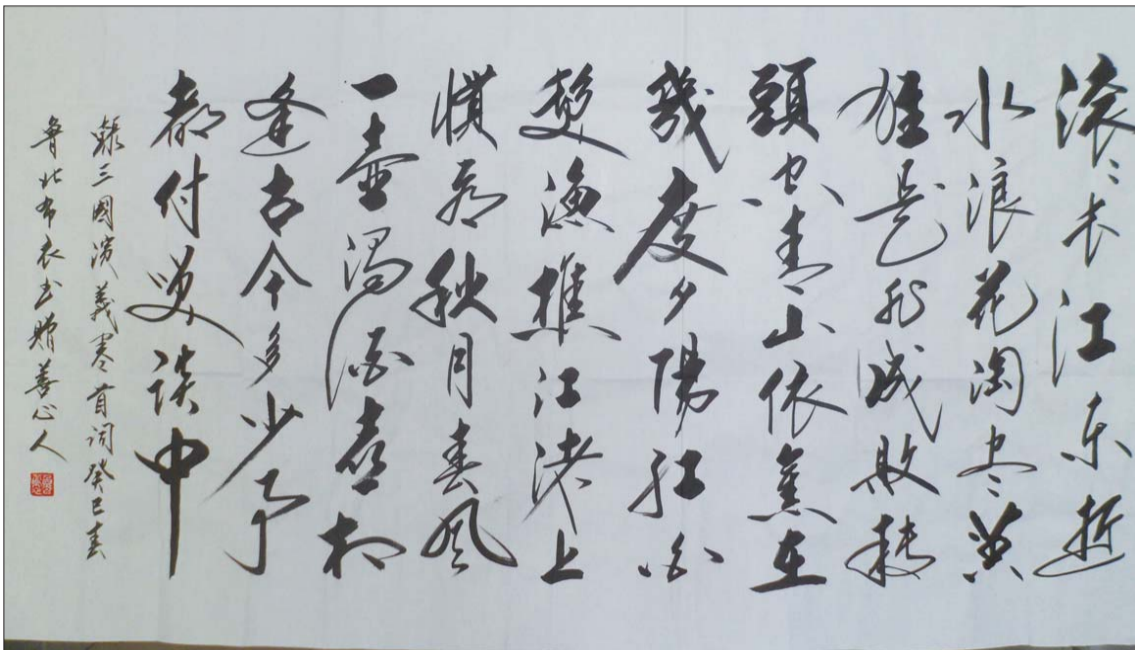 滚〻长江东逝
水浪花淘尽英
雄是非成败转
頭空青山依舊在
幾度夕陽红白
髮渔樵江渚上
惯看秋月春风
一壶濁酒喜相
逢古今多少事
都付笑谈中
錄三國演義卷首词癸巳春
鲁北布衣书赠善心人